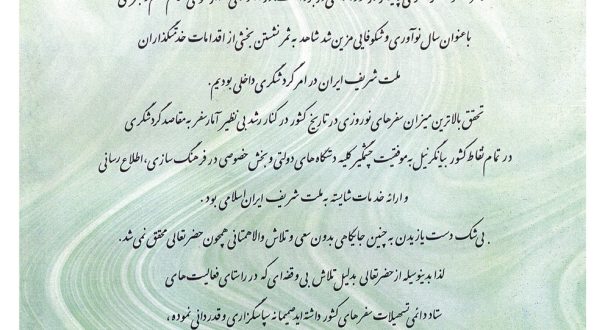 باعنوان سال نوآوری و شکوفایی مزین شد شاهد به ثمر نشستن بخشی از اقدامات خدمتگذاران
ملت شریف ایران در امر گردشگری داخلی بودیم.
تحقق بالاترین میزان سفرهای نوروزی در تاریخ کشور در کنار رشد بی نظیر آمار سفر به مقاصد گردشگری
در تمام نقاط کشور بیانگر نیل به موفقیت چشمگیر کلیه دستگاه های دولتی و بخش خصوصی در فرهنگ سازی، اطلاع رسانی
و ارائه خدمات شایسته به ملت شریف ایران اسلامی بود .
بی شک دست یازیدن به چنین جایگاهی بدون سعی و تلاش والا همتانی همچون حضرتعالی محقق نمی شد.
لذا بدینوسیله از حضرتعالی بدلیل تلاش بی وقفه ای که در راستای فعالیت های
ستاد دائمی تسهیلات سفرهای کشور داشته اید صمیمانه سپاسگزاری و قدردانی نموده ،